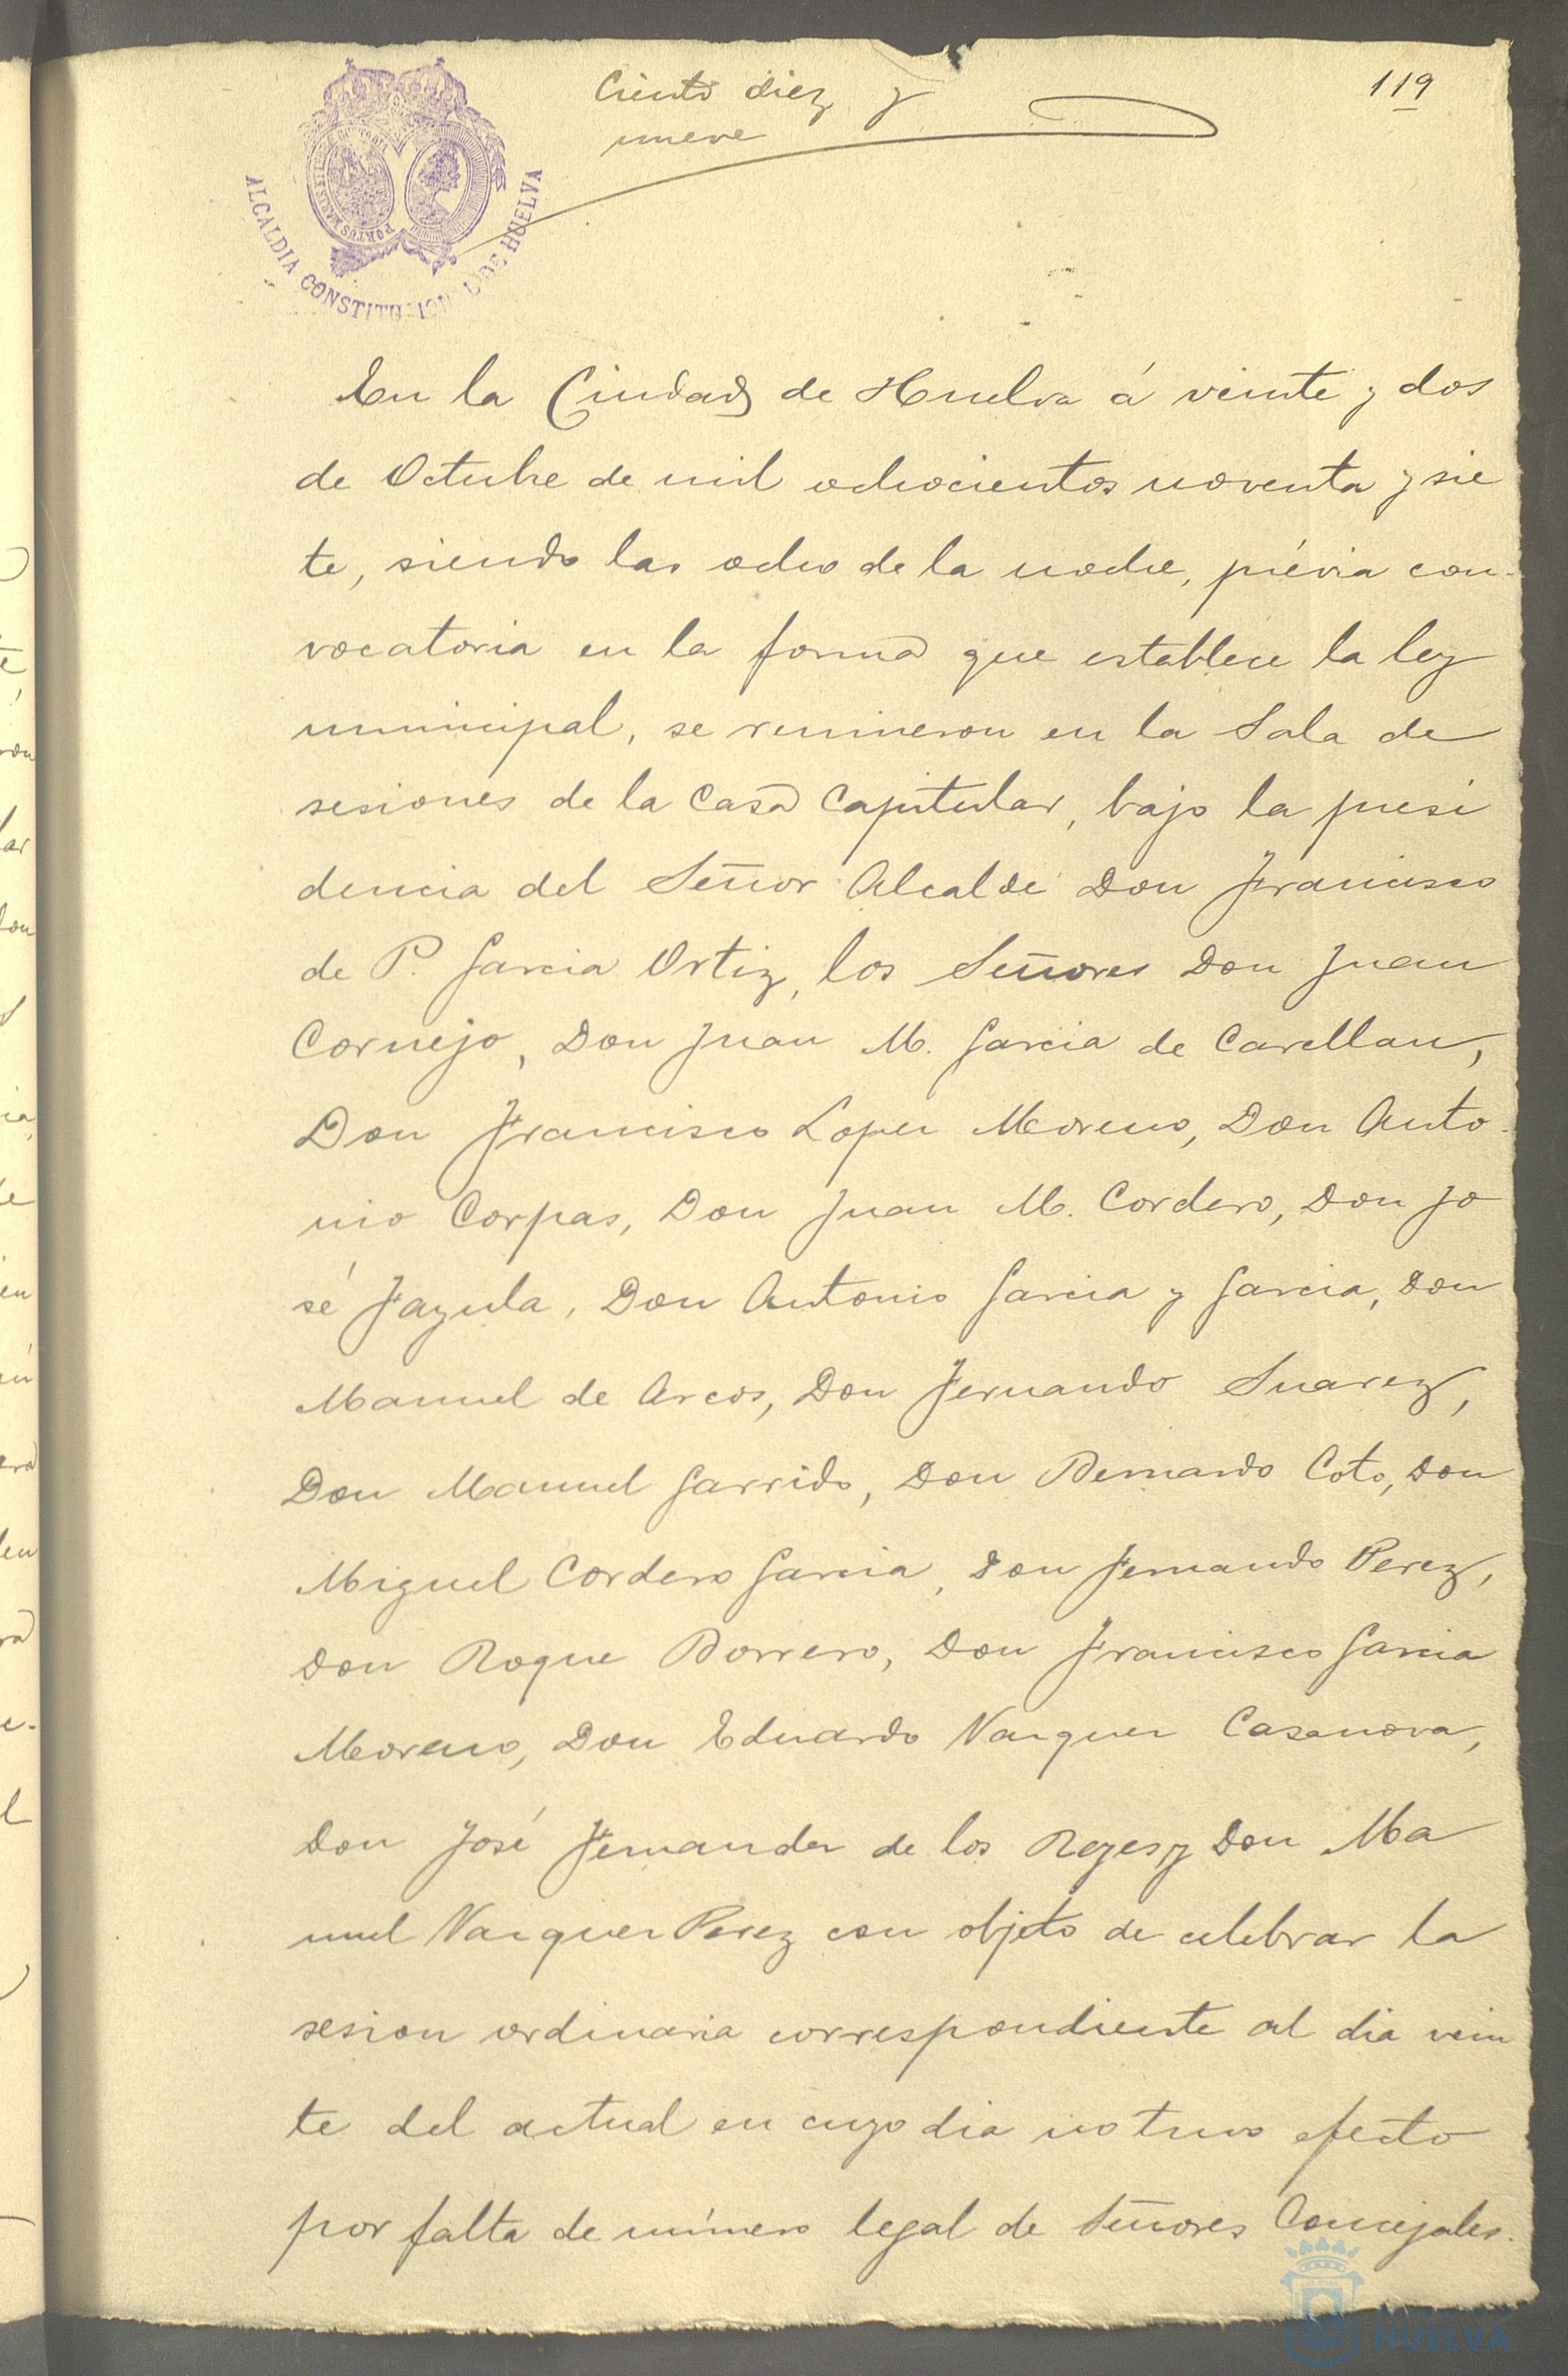 Ciento diez y
nueve
119
ALCALDIA CONSTITUCIONAL DE HUELVA
En la Ciudad de Huelva á veinte y dos
de Octubre de mil ochocientos noventa y sie
te, siendo las ocho de la noche, prévia con-
vocatoria en la forma que establece la ley
municipal, se reunieron en la Sala de
sesiones de la Casa Capitular, bajo la presi
dencia del Señor Alcalde Don Francisco
de P. Garcia Ortiz, los Señores Don Juan
Cornejo, Don Juan M. Garcia de Carellan,
Don Francisco Lopez Moreno, Don Anto-
nio Corpas, Don Juan M. Cordero, Don Jo
sé Fazula, Don Antonio Garcia y Garcia, Don
Manuel de Arcos, Don Fernando Suarez,
Don Manuel Garrido, Don Bernardo Coto, Don
Miguel Cordero Garcia, Don Fernando Perez,
Don Roque Borrero, Don Francisco Garcia
Moreno, Don Eduardo Vazquez Casanova,
Don José Fernandez de los Reyes y Don Ma
nuel Vazquez Perez con objeto de celebrar la
sesion ordinaria correspondiente al dia vein
te del actual en cuyo dia no tuvo efecto
por falta de número legal de Señores Concejales.
HUELVA